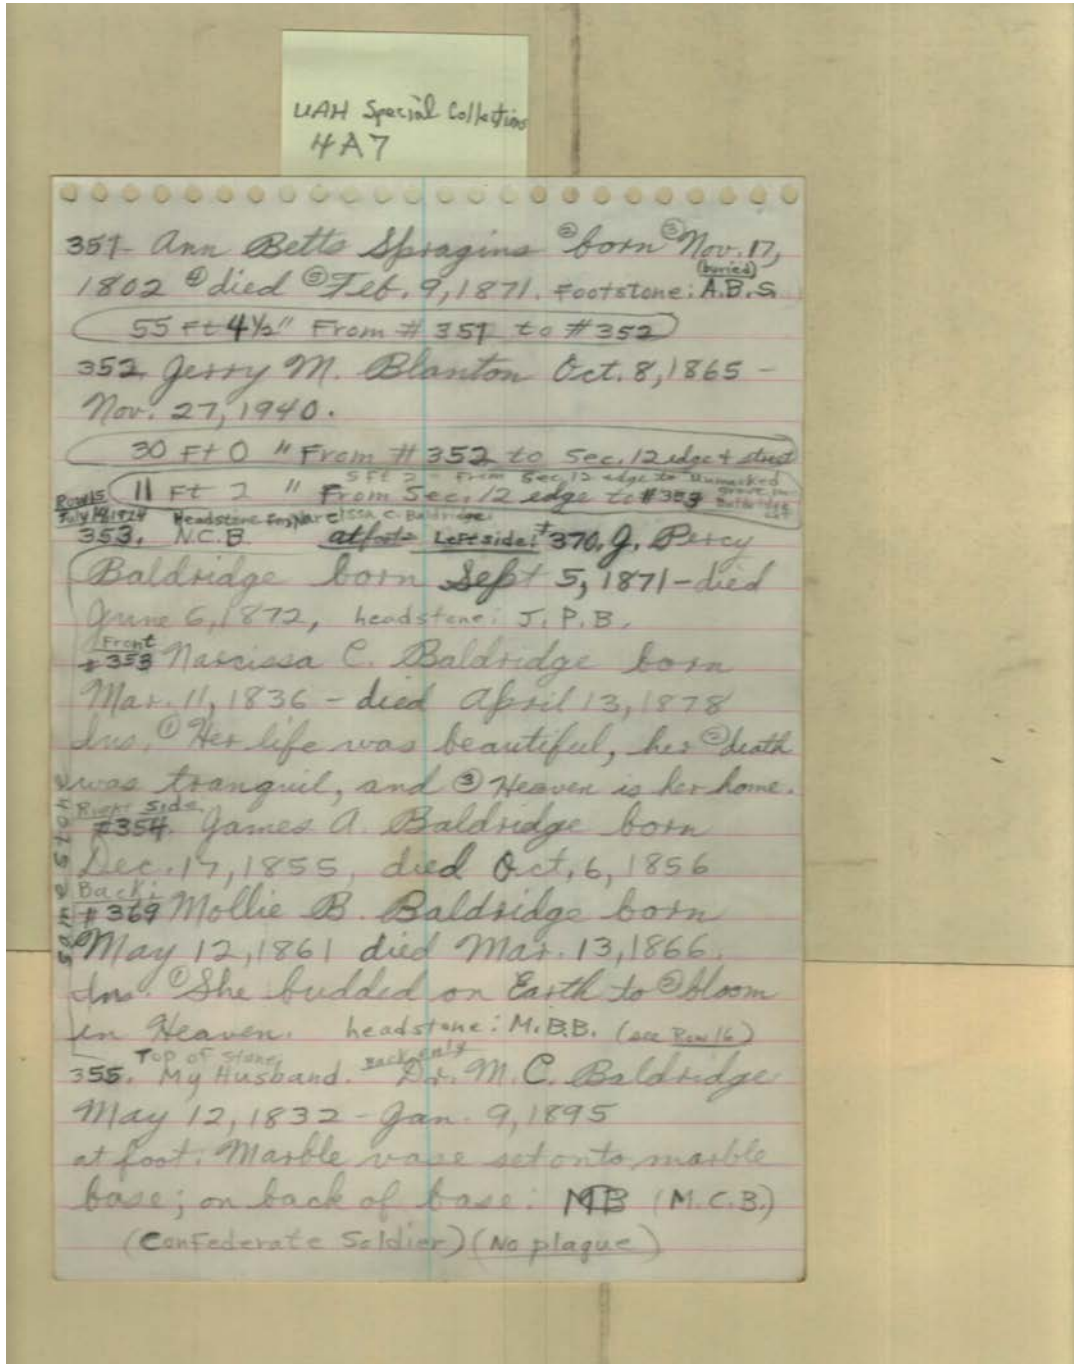 UAH Special Collections
4A7
351- Ann Betts Spragins ② born ③ Nov. 17,
(buried)
1802 ④ died ⑤ Feb. 9, 1871. Footstone: A.B.S
55 Ft 4½" From # 351 to #352
352. Jerry M. Blanton Oct. 8, 1865 -
Nov. 27, 1940.
30 Ft 0 " From # 352 to Sec. 12 edge & street
5 Ft 2 " From Sec. 12 edge to unmarked
11 Ft 2 " From Sec. 12 edge to #353 grave in
Row 15
Headstone for Narcissa C. Baldridge:
353. N.C.B. at foot Left side: #370. J. Percy
Baldridge born Sept 5, 1871 - died
June 6, 1872, headstone: J. P. B.
Front
#353 Narcissa C. Baldridge born
Mar. 11, 1836 - died April 13, 1878
Ins. ① Her life was beautiful, her ② death
was tranquil, and ③ Heaven is her home.
Right side
#354. James A. Baldridge born
Dec. 17, 1855, died Oct, 6, 1856
Back:
#369 Mollie B. Baldridge born
May 12, 1861 died Mar. 13, 1866.
Ins. ① She budded on Earth to ② bloom
in Heaven. headstone: M.B.B. (see Row 16)
same stone
Top of stone Back only
355. My Husband. Dr. M. C. Baldridge
May 12, 1832 - Jan. 9, 1895
at foot: Marble vase set onto marble
base; on back of base: MB (M.C.B.)
(Confederate Soldier) (No plaque)